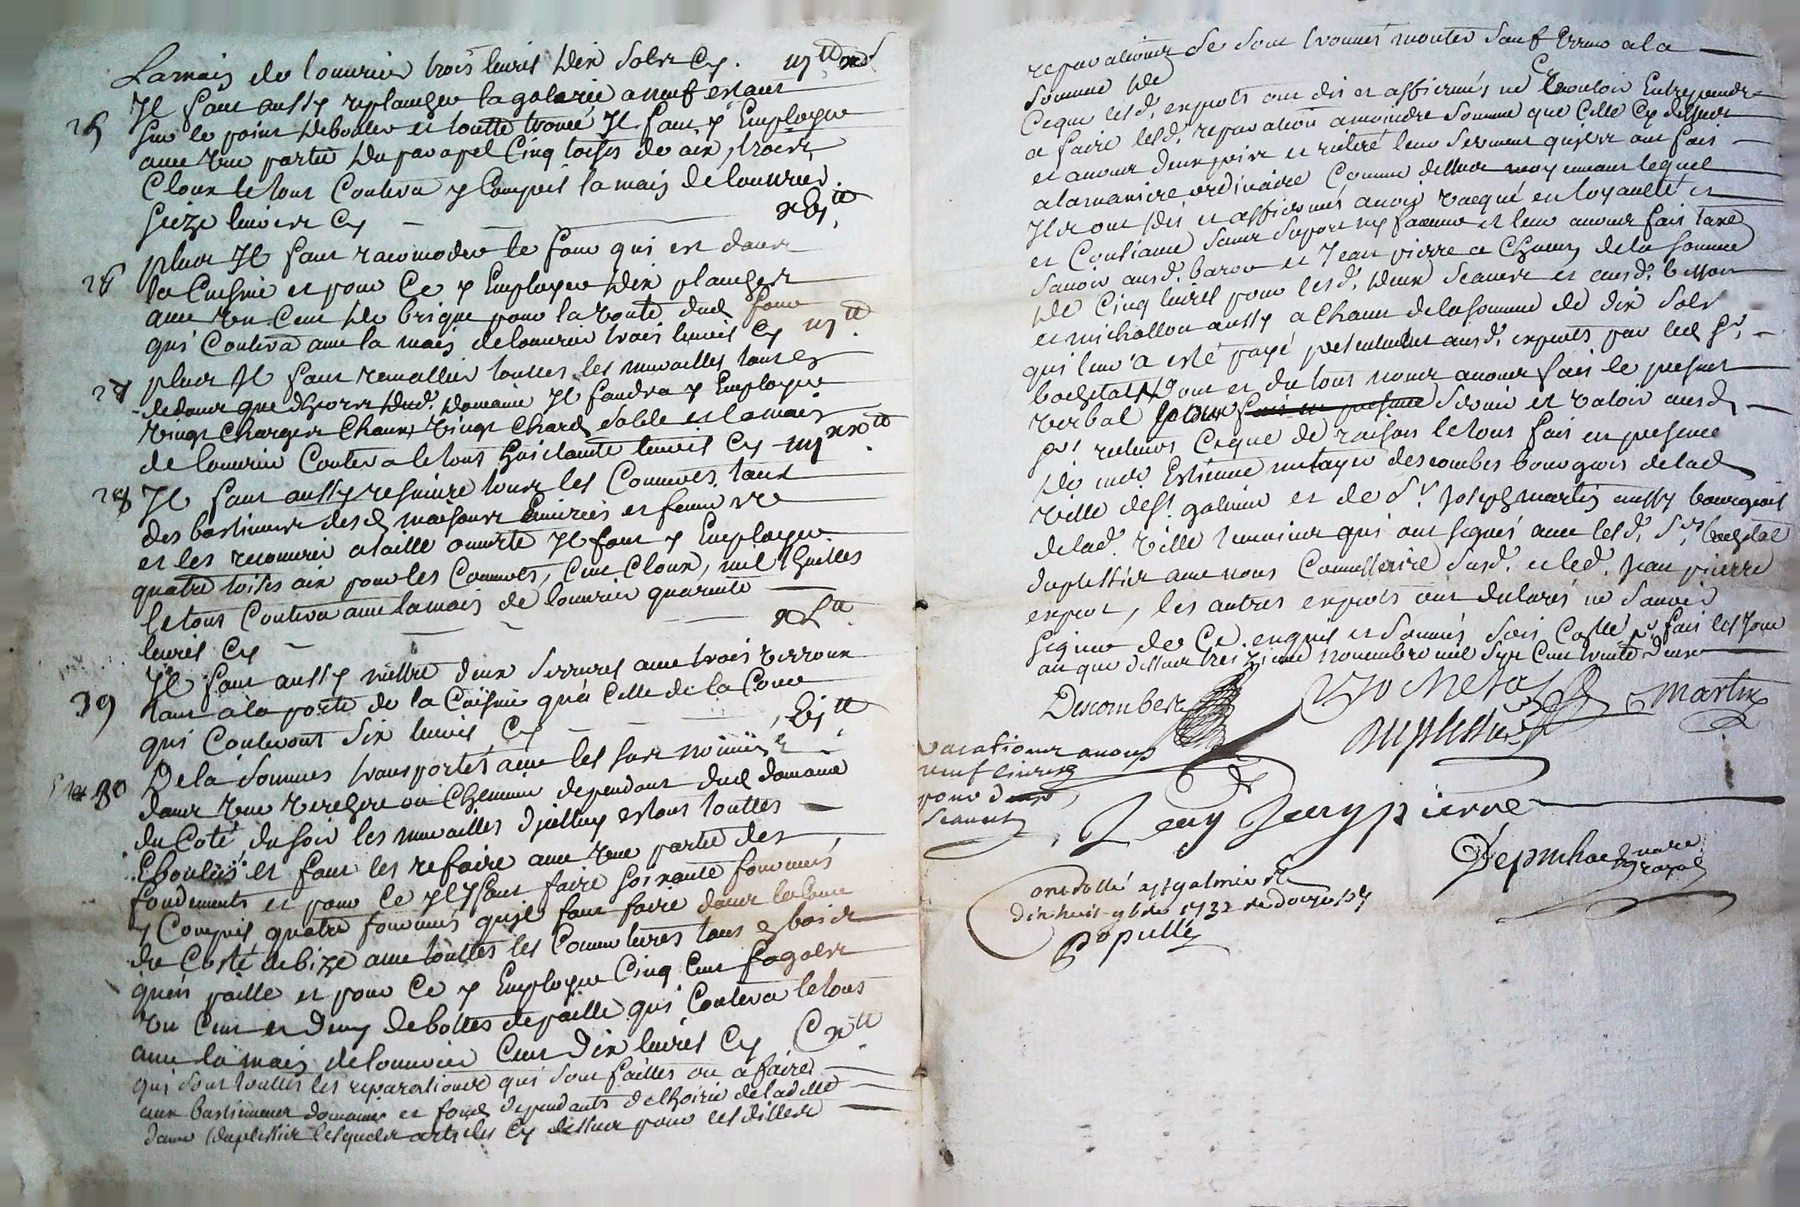 La main de louvrier trois livres dix sols Cy. iij tt x s
25 Il faut aussy replancher la galerie a neuf estant
sur le point de et toutte Il faut y Employer
avec une partie du parapel Cinq toises de aix, trois
Cloux le tout Coutera y Compris la main de louvrier
seize livres Cy xvj tt
26 plus Il faut racomoder le four qui est dans
la Cuisine et pour Ce y Employer dix planches
avec un Cent de brique pour la voute dud four
qui Coutera avec la main de louvrier trois livres Cy iij tt
27 plus Il faut remallier touttes les murailles tant
dedans que dehors dud. domaine Il faudra y Employer
vingt charges chaux, vingt chard sable et la main
de louvrier Coutera le tout huictante livres Cy iiij xx tt
28 Il faut aussy refaire tous les Couverts tant
des bastiments desd maisons Ecuries et feniere
et les recouvrir a taille ouverte Il faut y Employer
quatre toises aix pour les Couverts, Cent Cloux, mil thuilles
le tout Coutera avec la main de louvrier quarente
livres Cy xL tt
29 Il faut aussy mettre deux serrures avec trois verroux
tant a la porte de la Cuisine qua Celle de la Cour
qui Couteront six livres Cy vj tt
30 De la sommes transportés avec les sus només
dans une verchere ou Cheneviere dependant dud domaine
du Coté du soir les murailles diceluy estant touttes
Eboulées et faut les refaire avec une partie des
fondements et pour Ce Il y faut faire soixante
y Compris quatre quil faut faire dans la Cour
du Costé de bize avec touttes les Couvertures tant en bois
quen paille et pour Ce y Employer Cinq Cent fagots
un Cent et demy de bottes de paille qui Coutera le tout
avec la main de louvrier Cent dix livres Cy Cx tt
qui sont touttes les reparations qui sont faittes ou a faire
aux bastiments domaine et fonds dependants de lhoirie de laditte
dame duplessier lesquels articles Cy dessus pour lesdittes
reparations se sont trouvés monter sauf Erreur a la
somme de
Ceque lesd. experts ont dit et affirmés ne vouloir Entreprendre
a faire lesd. reparations a moindre somme que Celle Cy dessus
et avons deux pris et reiteré leur serment quils ont fait
a la maniere ordinaire Comme dessus moyennant lequel
Ils ont dit et affirmés avoir vacqué en loyauté et
et Consiance sans suport ny faveur et leur avons fait taxe
savoir ausd. baron et Jean pierre a Chacun de la somme
de Cinq livres pour lesd. deux seances et ausd. besson
et michallon aussy a Chacun de la somme de dix sols
qui leur a esté payé presentement ausd. experts par led sr.
bochetal Dont et du tout nous avons fait le present
verbal pour servir et valoir ausd
srs Ceque de raison le tout fait en presence
de mes. Estienne descombes bourgeois de lad
ville de st. galmier et de sr. Joseph martin aussy bourgeois
de lad. ville temoins qui ont signés avec lesd. srs. bochetal
duplessier avec nous Commissaire susd. et led. Jean pierre
expert, les autres experts ont declarés ne savoir
signer de Ce enquis et sommés fait les Jour
an que dessus treizieme novembre mil sept Cent trente deux
Descombes Bochetal martin
duplessier
vacations a nous
neuf livres
pour deux
seances
Jean pierre
Controllé a st galmier le
dix huit 9bre 1732
Populle